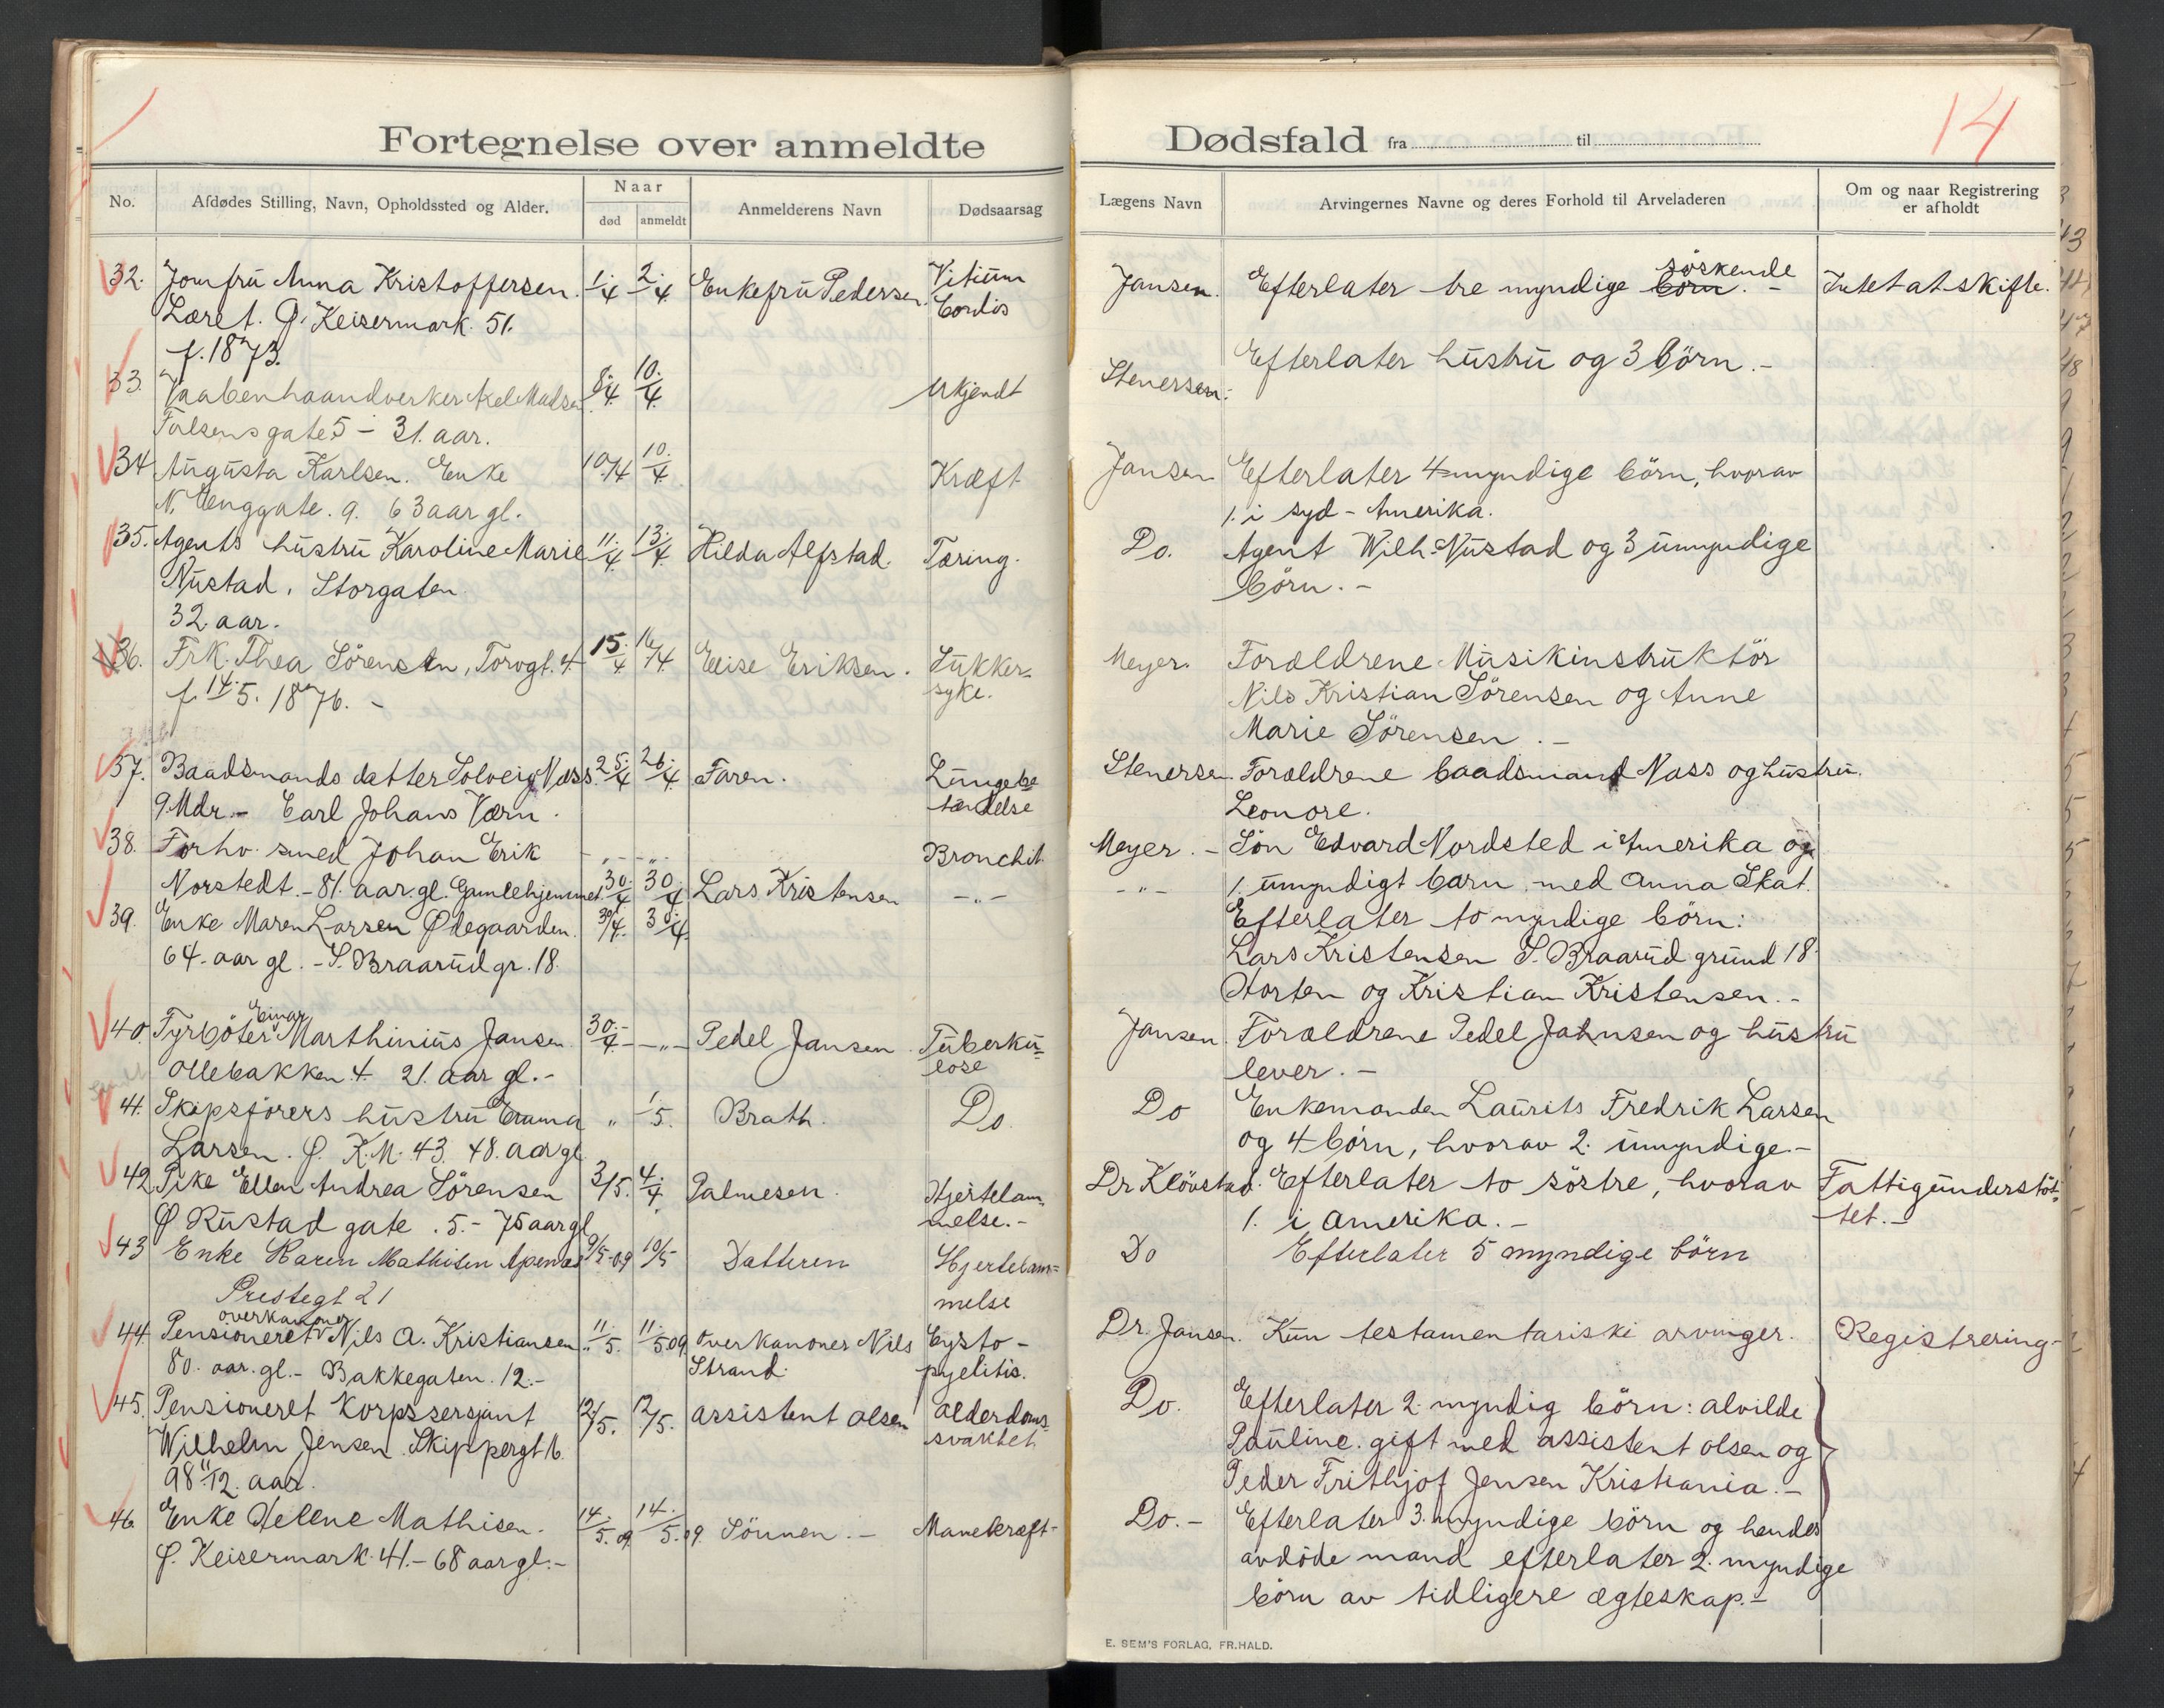 14
Fortegnelse over anmeldte
Dødsfald fra til
No. Afdødes Stilling, Navn, Opholdssted og Alder. Naar død anmeldt Anmelderens Navn Dødsaarsag
Lægens Navn Arvingernes Navne og deres Forhold til Arveladeren Om og naar Registrering er afholdt
32. Jomfru Anna Kristoffersen. 1/4 2/4 Enkefru Pedersen. Vitium Jansen. Efterlater tre myndige börn söskende. - Intet at skifte.
Læret. Ø. Keisermark. 51. Cordis
f. 1873.
33. Vaabenhaandverker Axel Madsen 8/4 10/4 Ukjendt Stenersen. Efterlater hustru og 3 börn. -
Falsensgate 5 - 31. aar.
34 Augusta Karlsen. Enke 10/4 10/4 Kræft Jansen Efterlater 4 myndige börn, hvorav
N. Enggate. 9. 63 aar gl. 1. i Syd-Amerika.
35. Agents hustru Karoline Marie 11/4 13/4 Hilda Alfstad. Tæring. Do. Agent Wilh. Nustad og 3 umyndige
Nustad, Storgaten börn. -
32 aar.
36. Frk. Thea Sörensen, Torvgt. 4 15/4 16/4 Elise Eriksen. Sukker- Meyer. Forældrene Musikinstruktör
f. 14/5. 1876. - syke. Nils Kristian Sörensen og Anne
Marie Sörensen. -
37. Baadsmands datter Solveig Næss 25/4 26/4 Faren. Lungebe- Stenersen. Forældrene baadsmand Næss og hustru
9. Mdr. - Carl Johans Værn. tændelse Leonore.
38. Forhv. smed Johan Erik - " - " Bronchit Meyer. - Sön Edvard Nordsted i Amerika og
Norstedt. - 81. aar. gl. Gamlehjemmet 30/4 30/4 Lars Kristensen - " - - " - 1. umyndigt barn med Anna Skat.
39. Enke Maren Larsen Ødegaarden. 30/4. 30/4. Efterlater to myndige börn:
64. aar gl. - S. Braarud gr. 18. Lars Kristensen S. Braarud grund 18.
Horten og Kristian Kristensen. -
40. Fyrböter Einar Marthinius Jansen. 30/4 - " - Pedel Jansen. Tuberku- Jansen. Forældrene Pedel Jahnsen og hustru
Ollebakken 4. 21. aar gl. - lose lever. -
41. Skipsförers hustru Emma " 1/5. Brath. Do. Do Enkemanden Laurits Fredrik Larsen
Larsen. Ø. K. M. 43. 48. aar gl og 4 börn, hvorav 2. umyndige. -
42. Pike Ellen Andrea Sörensen 3/5. 4/4. Palmesen. Hjertelam- Dr Klövstad. Efterlater to söstre, hvorav Fattigunderstöt-
Ø Rustad gate. 5. - 75 aar gl melse. - 1. i Amerika. - tet. -
43 Enke Karen Mathisen Apenæs 9/5-09 10/5 Datteren Hjertelam= Do Efterlater 5 myndige börn
Prestegt 21 melse
44. Pensioneret overkanoner Nils A. Kristiansen 11/5. 11/5 09. Overkanoner Nils Cysto- Dr. Jansen. Kun testamentariski arvinger. Registrering -
80. aar. gl. - Bakkegaten. 12. - Strand. pyelitis.
45. Pensioneret Korpssersjant 12/5. 12/5. Assistent Olsen Alderdoms- Do. Efterlater 2. myndig börn: Alvilde
Wilhelm Jensen. Skippergt. 16. svakhet Pauline. gift med assistent Olsen og
98 11/12. aar. Peder Frithjof Jensen Kristiania. -
46. Enke Helene Mathisen. 14/5. 09 14/5. 09. Sönnen. - Mavekræft - Do. - Efterlater 3. myndige börn og hendes
Ø. Keisermark. 41. - 68 aar gl. - avdöde mand efterlater 2. myndige
börn av tidligere ægteskap. -
E. SEM'S FORLAG, FR.HALD.